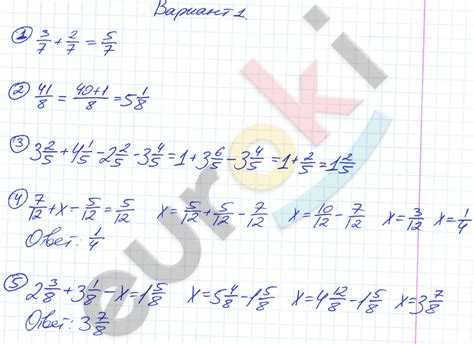 Вариант 1.
① 3/7 + 2/7 = 5/7
② 41/8 = 40+1/8 = 5 1/8
③ 3 2/5 + 4 1/5 - 2 2/5 - 3 4/5 = 1 + 3 6/5 - 3 4/5 = 1 + 2/5 = 1 2/5
④ 7/12 + x - 5/12 = 5/12 x = 5/12 + 5/12 - 7/12 x = 10/12 - 7/12 x = 3/12 x = 1/4
Ответ: 1/4
⑤ 2 3/8 + 3 1/8 - x = 1 5/8 x = 5 4/8 - 1 5/8 x = 4 12/8 - 1 5/8 x = 3 7/8
Ответ: 3 7/8
euroki